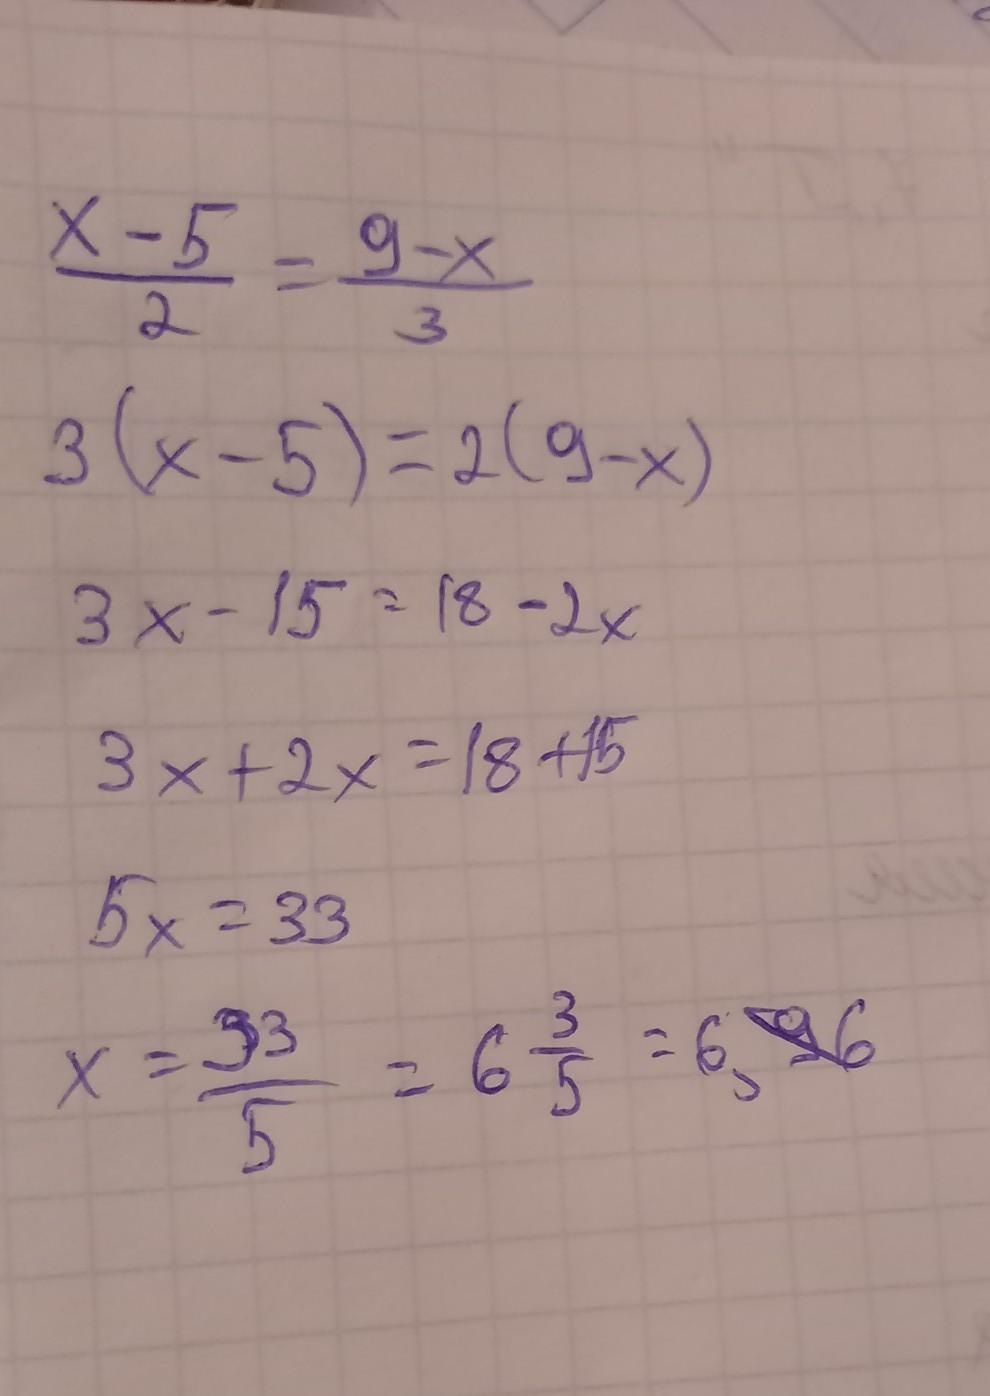 x-5/2 = 9-x/3
3(x-5)=2(9-x)
3x-15=18-2x
3x+2x=18+15
5x=33
x=33/5=6 3/5=6,6